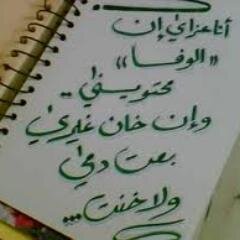 أنا عزاي إن
((الوفـا))
محتويني ..
وإن خان غيري
بعت دمي
ولا خنت...